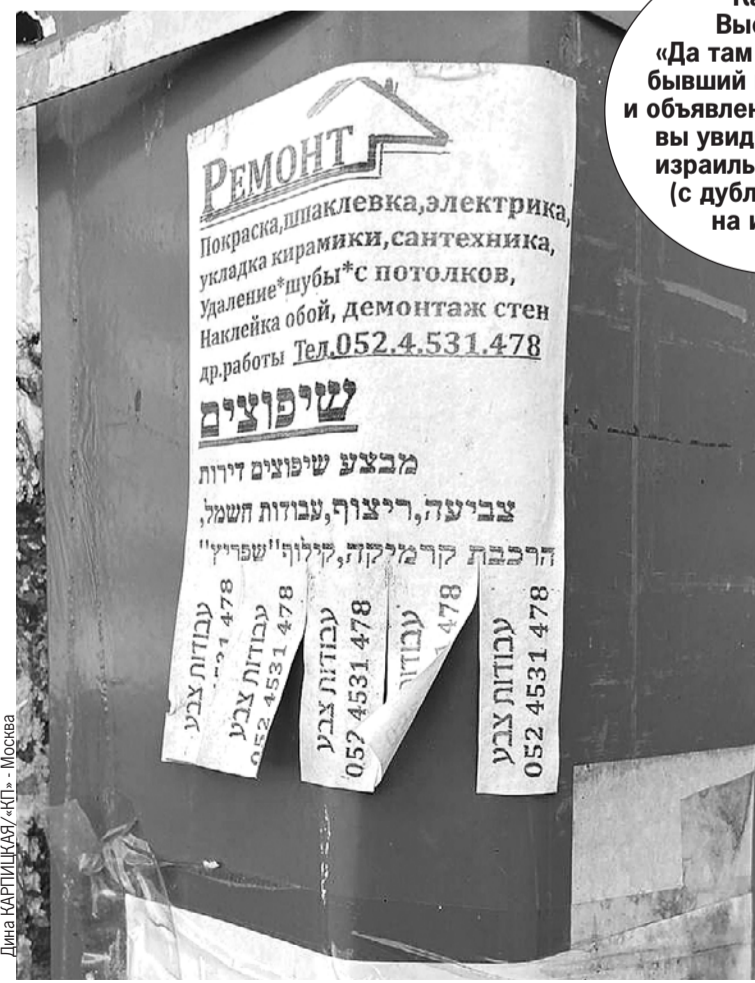 Вы
«Да там
бывший
и объявлен
вы увид
израиль
(с дубл
на и
РЕМОНТ
Покраска,шпаклевка,электрика,
укладка кирамики,сантехника,
Удаление*шубы*с потолков,
Наклейка обой, демонтаж стен
др.работы Тел.052.4.531.478
שיפוצים
מבצע שיפוצים דירות
צביעה,ריצוף,עבודות חשמל,
הרכבת קרמיקה,קילוף"שפריץ"
עבודות צבע
478
עבודות צבע
052 4531 478
עבודות צבע
052 4531 478
עבודות
478
עבודות צבע
052 4531 478
Дина КАРПИЦКАЯ/«КП» - Москва